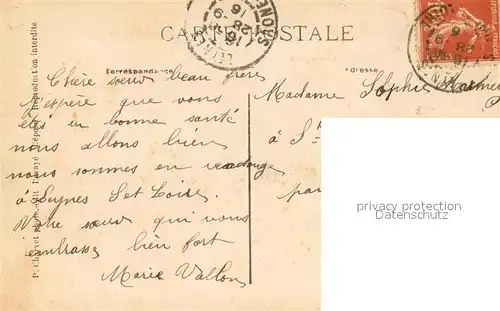 CARTE POSTALE
Correspondance
Adresse
Chère sœur beau frère
J'espère que vous
êtes en bonne santé
nous allons bien
nous sommes en vendange
à Leynes S et Loire
Votre sœur qui vous
embrasse bien fort
Marie Vallon
Madame Sophie
à S
par
privacy protection
Datenschutz
Reproduction interdite